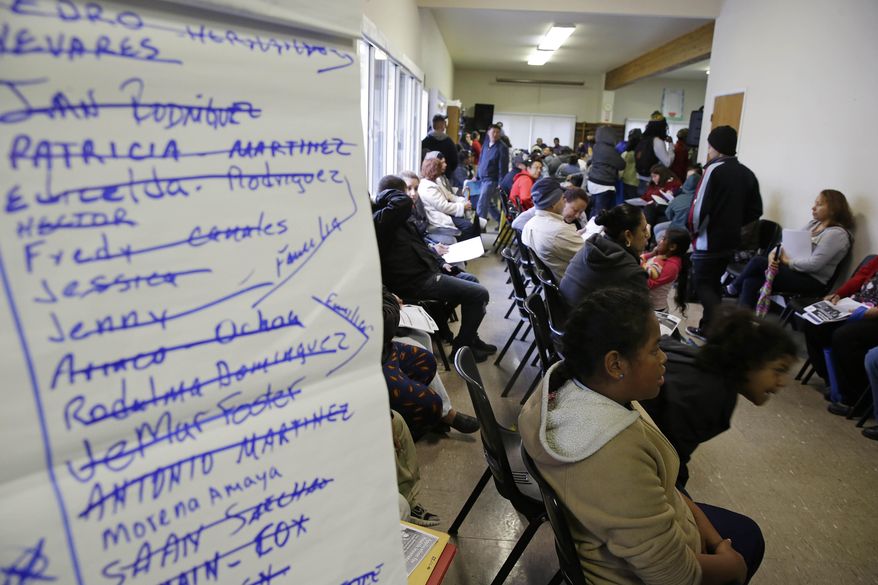 EDRO
NEVARES
JUAN RODRIGUEZ
PATRICIA - MARTINEZ
Euricelda. Rodriguez
HECTOR
Fredy Canales
Jessica
Jenny
Familia
Ochoa
Familia
Rodalma Dominguez
JeMar Foster
ANTONIO MARTINEZ
Morena Amaya
SAAN Saechao
COX